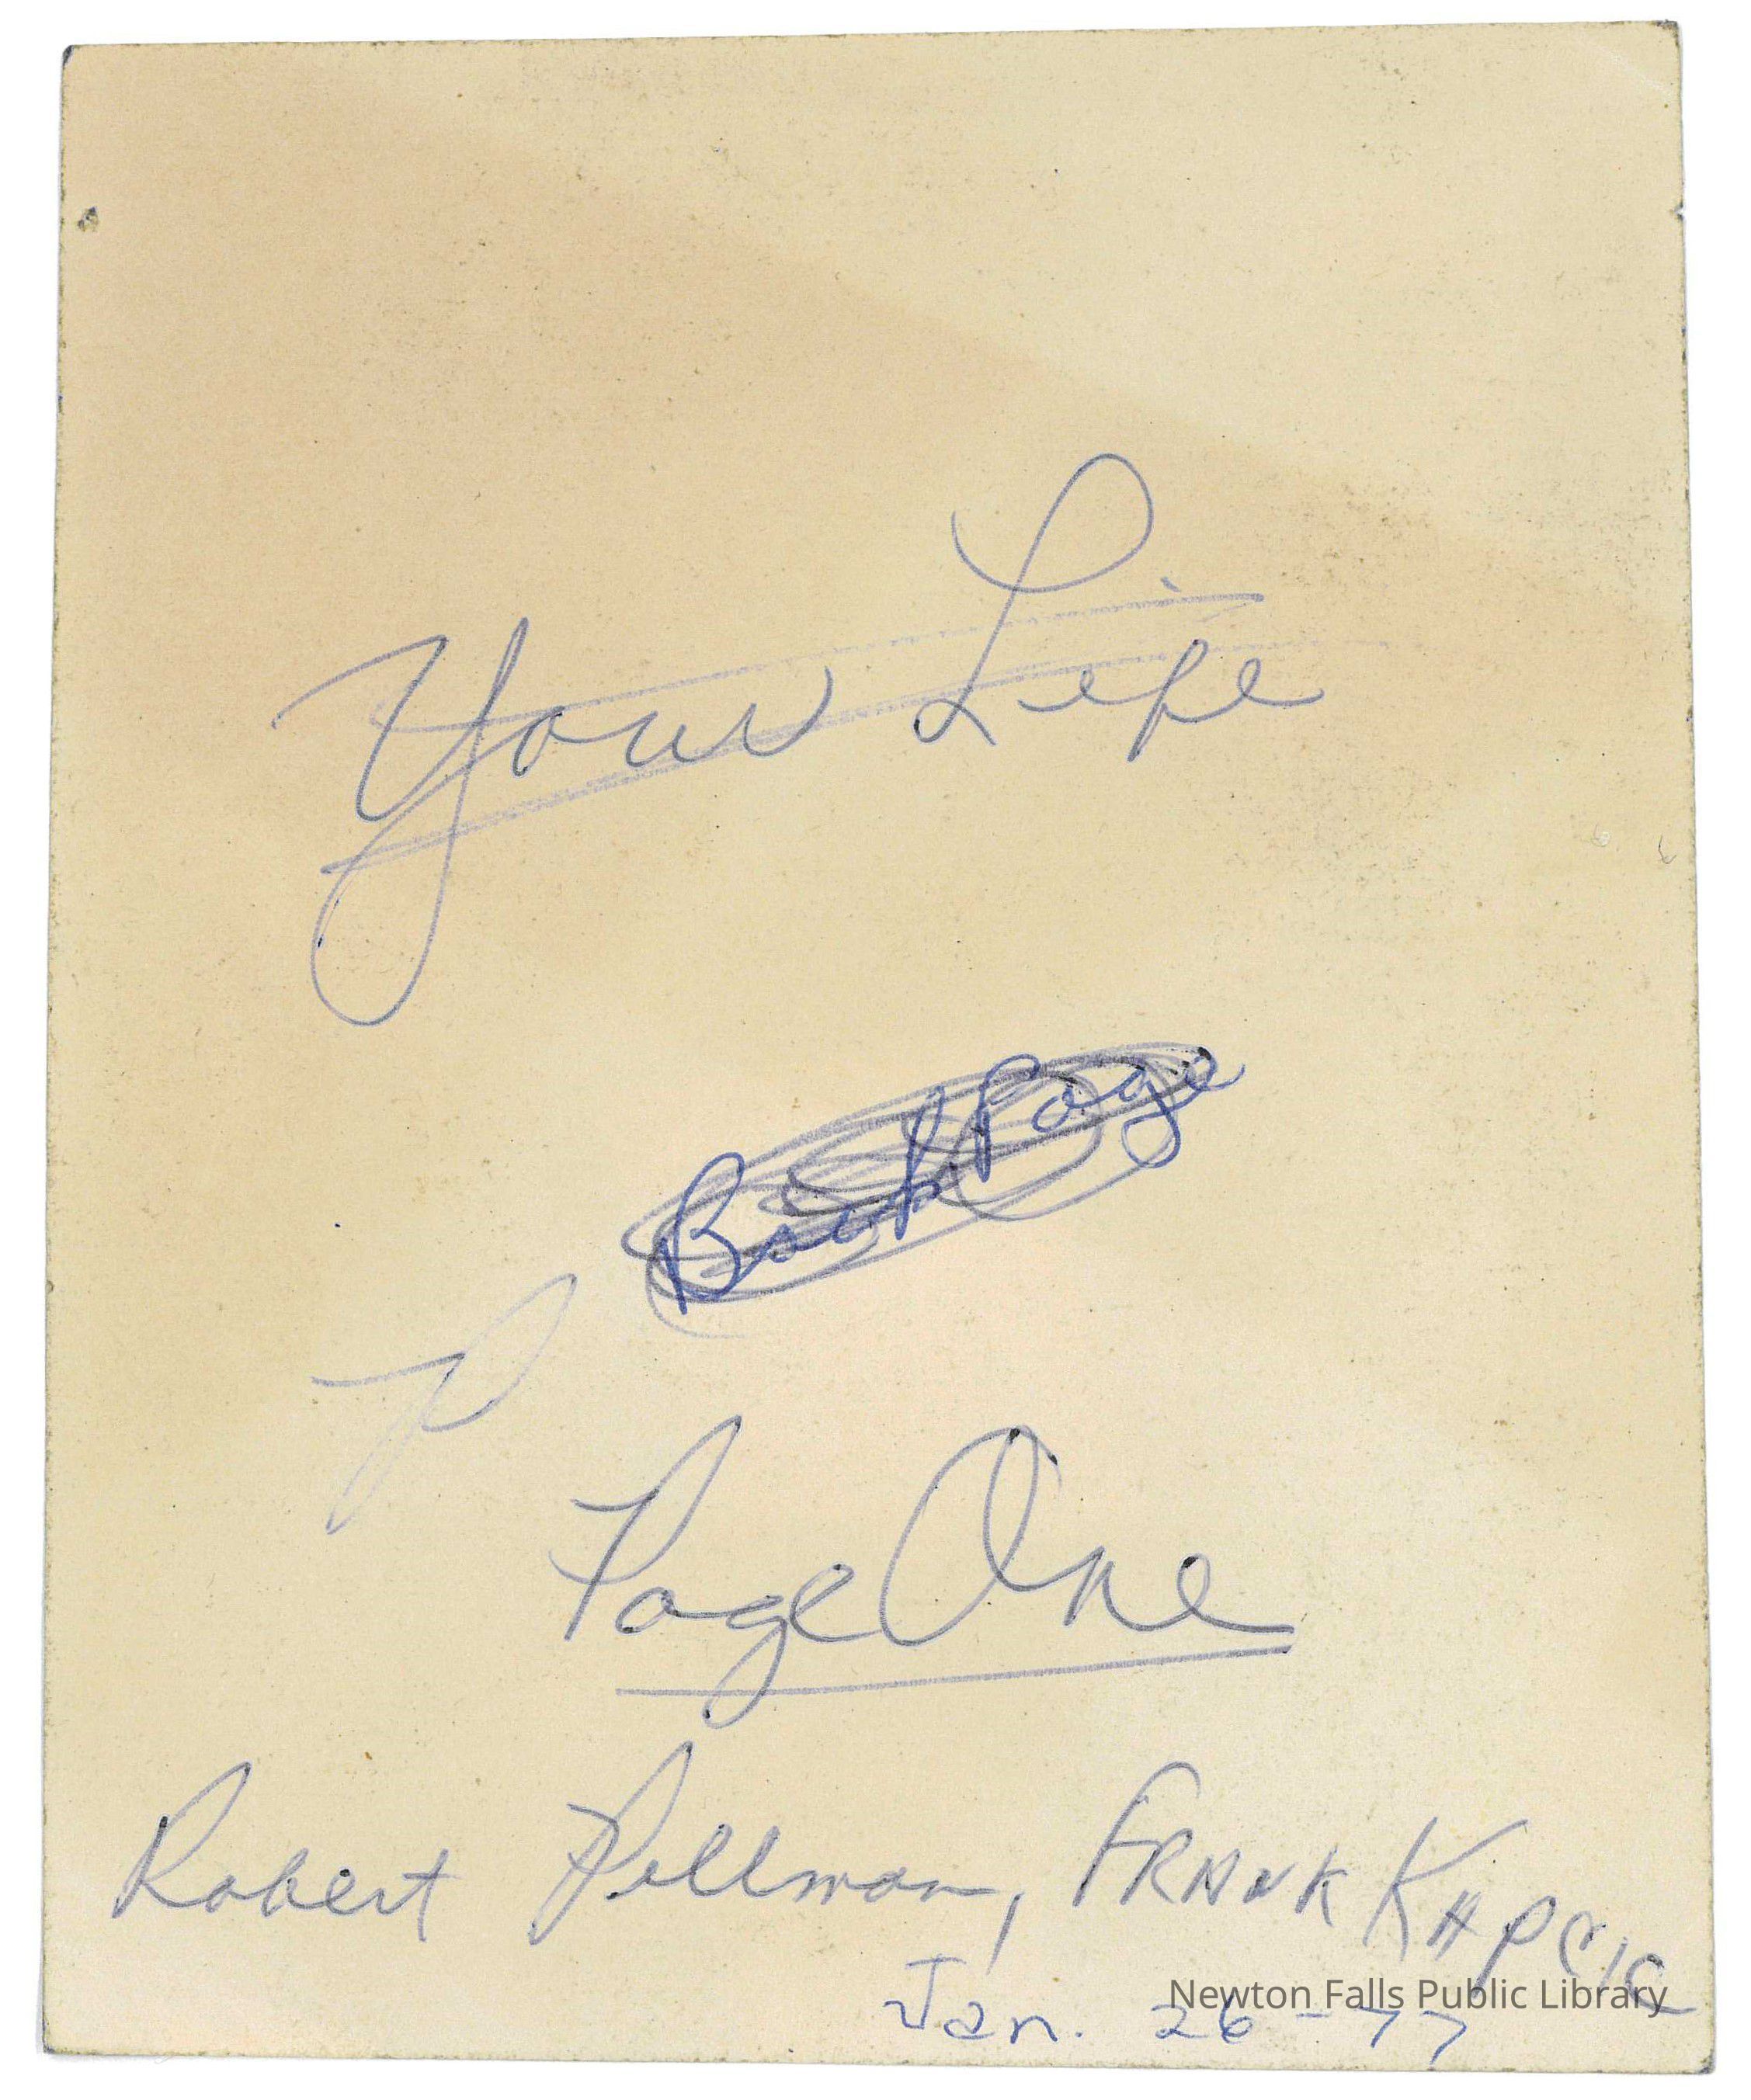 Your Life
Back Page
P
Page One
Robert Pellman, FRANK
Jan. 26-77
Newton Falls Public Library